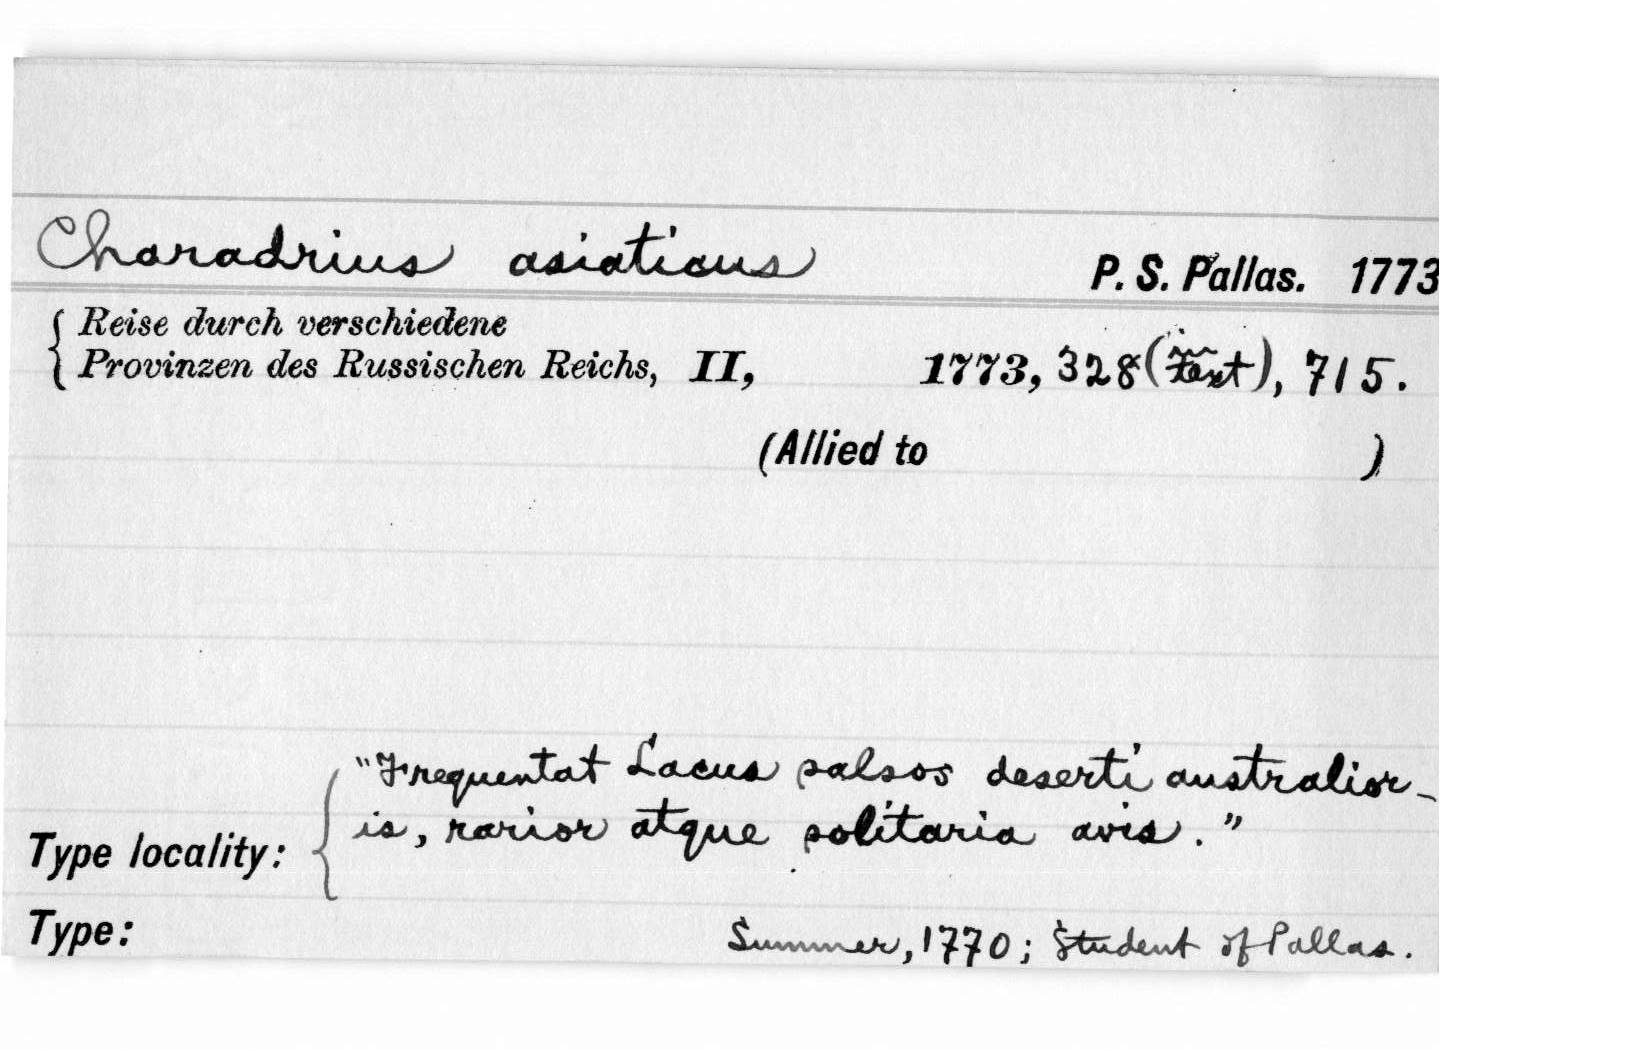 Charadrius asiaticus P. S. Pallas. 1773
Reise durch verschiedene
Provinzen des Russischen Reichs, II, 1773, 328 (Text), 715.
(Allied to )
"Frequentat Lacus salsos deserti australior-
is, rarior atque solitaria avis."
Type locality:
Type: Summer, 1770; Student of Pallas.